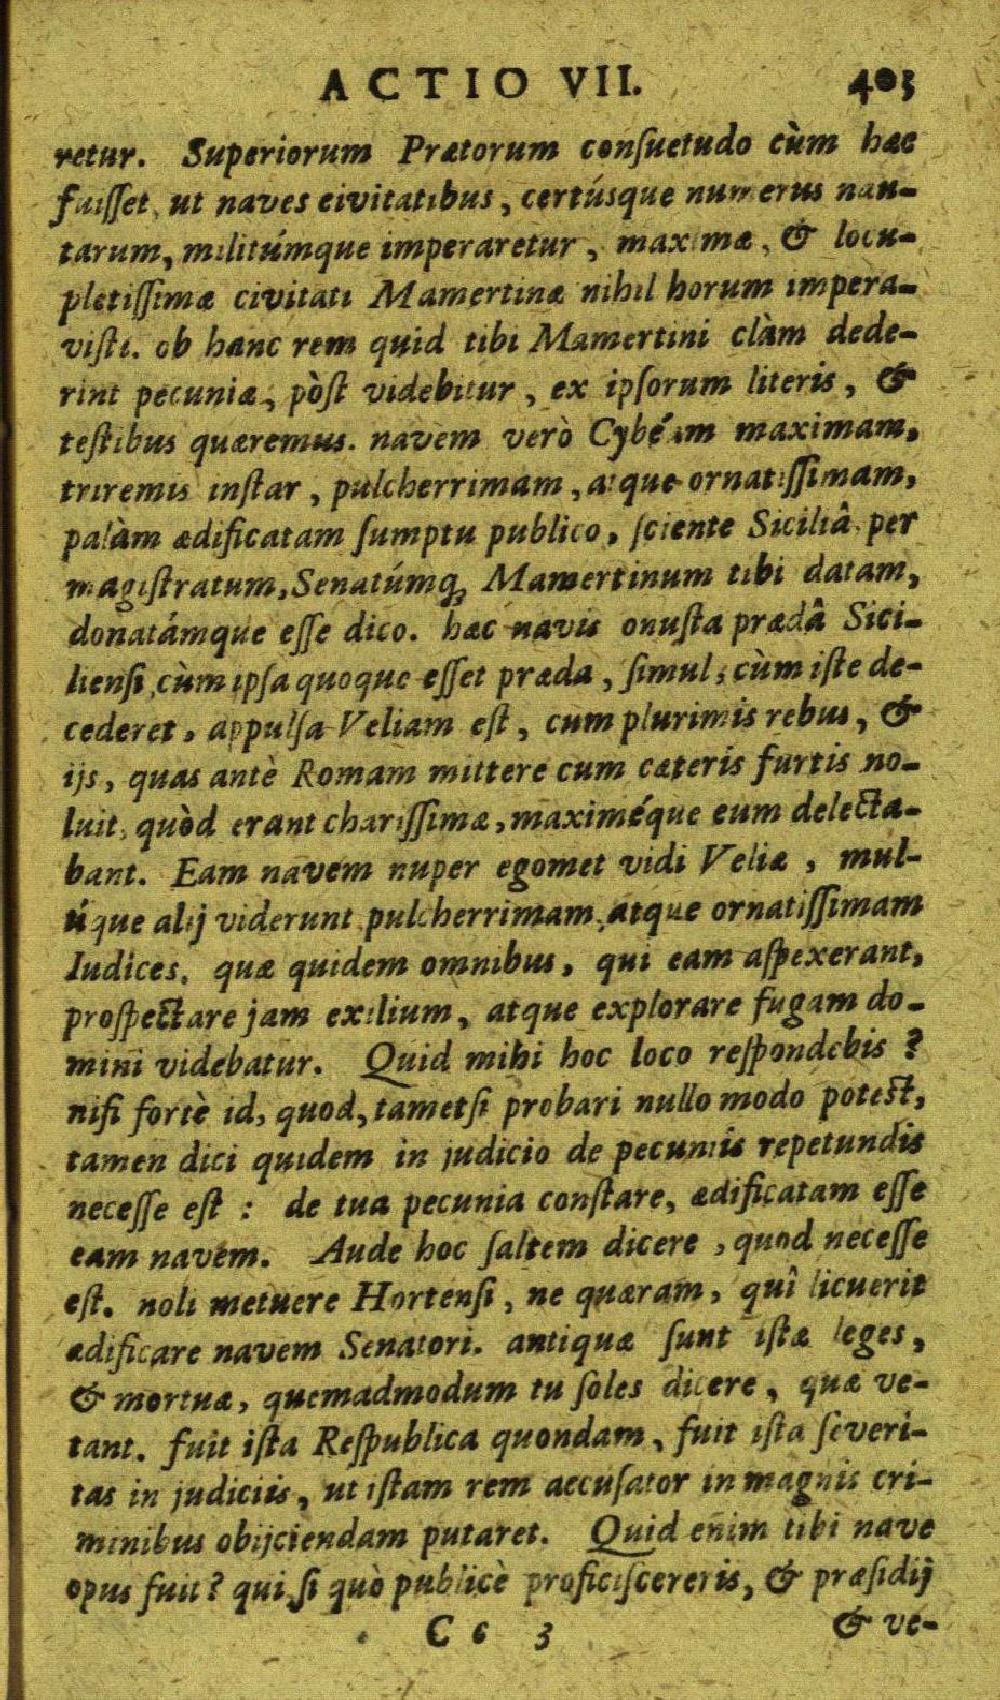 ACTIO VII. 403
retur. Superiorum Prætorum conſuetudo cùm hæc
fuiſſet, ut naves civitatibus, certúsque numerus nau-
tarum, militúmque imperaretur, maximæ, & locu-
pletiſſimæ civitati Mamertinæ nihil horum impera-
viſti. ob hanc rem quid tibi Mamertini clàm dede-
rint pecuniæ, pòſt videbitur, ex ipſorum literis, &
teſtibus quæremus. navem verò Cybéam maximam,
triremis inſtar, pulcherrimam, atque ornatiſſimam,
palàm ædificatam ſumptu publico, ſciente Siciliâ, per
magiſtratum, Senatúmq; Mamertinum tibi datam,
donatámque eſſe dico. hæc navis onuſta prædâ Sici-
lienſi, cùm ipſa quoque eſſet præda, ſimul, cùm iſte de-
cederet, appulſa Veliam eſt, cum plurimis rebus, &
ijs, quas antè Romam mittere cum cæteris furtis no-
luit, quòd erant chariſſimæ, maximéque eum delecta-
bant. Eam navem nuper egomet vidi Veliæ, mul-
tíque alij viderunt pulcherrimam, atque ornatiſſimam
Iudices, quæ quidem omnibus, qui eam aſpexerant,
proſpectare jam exilium, atque explorare fugam do-
mini videbatur. Quid mihi hoc loco reſpondebis?
niſi fortè id, quod, tametſi probari nullo modo poteſt,
tamen dici quidem in judicio de pecuniis repetundis
neceſſe eſt: de tua pecunia conſtare, ædificatam eſſe
eam navem. Aude hoc ſaltem dicere, quod neceſſe
eſt. noli metuere Hortenſi, ne quæram, quî licuerit
ædificare navem Senatori. antiquæ ſunt iſtæ leges,
& mortuæ, quemadmodum tu ſoles dicere, quæ ve-
tant. fuit iſta Reſpublica quondam, fuit iſta ſeveri-
tas in judiciis, ut iſtam rem accuſator in magnis cri-
minibus obijciendam putaret. Quid enim tibi nave
opus fuit? qui, ſi quò publicè proficiſcereris, & præſidij
Cc 3 & ve-